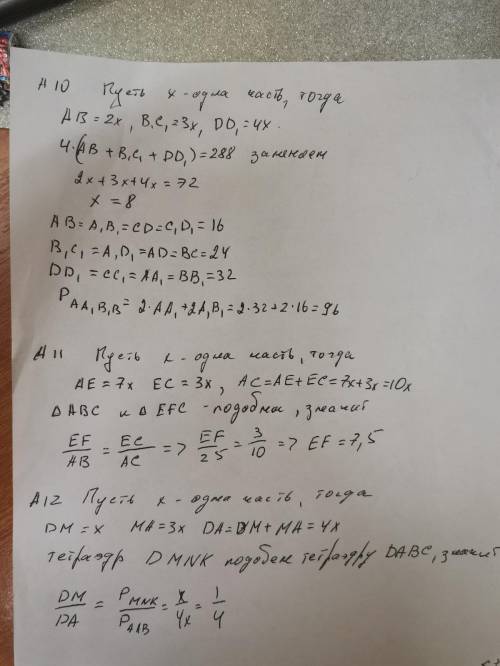 А10 Пусть x - одна часть, тогда
AB = 2x, B₁C₁ = 3x, DD₁ = 4x.
4·(AB + B₁C₁ + DD₁) = 288
2x + 3x + 4x = 72
x = 8
AB = A₁B₁ = CD = C₁D₁ = 16
B₁C₁ = A₁D₁ = AD = BC = 24
DD₁ = CC₁ = AA₁ = BB₁ = 32
P_AA₁B₁B = 2·AA₁ + 2A₁B₁ = 2·32 + 2·16 = 96
А11 Пусть x - одна часть, тогда
AE = 7x EC = 3x, AC = AE + EC = 7x + 3x = 10x
Δ ABC и Δ EFC - подобны, значит
EF/AB = EC/AC => EF/25 = 3/10 => EF = 7,5
А12 Пусть x - одна часть, тогда
DM = x MA = 3x DA = DM + MA = 4x
тетраэдр DMNK подобен тетраэдру DABC, значит
DM/DA = P_MNK/P_AAB = x/4x = 1/4